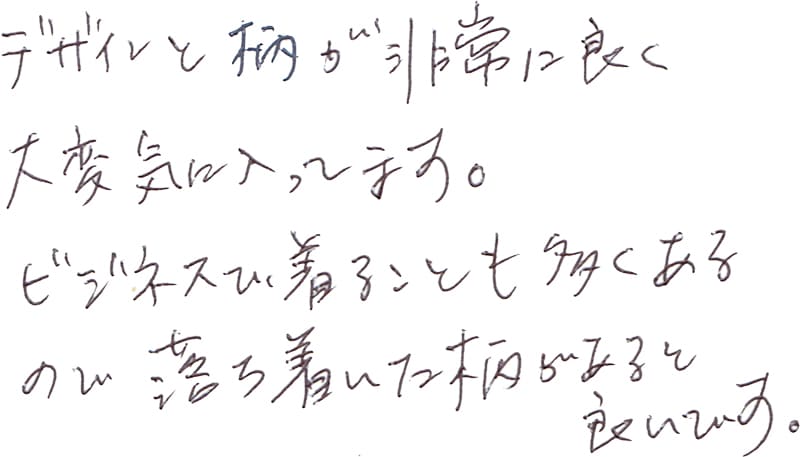 デザインと柄が非常に良く
大変気に入ってます。
ビジネスで着ることも多くある
ので落ち着いた柄があると
良いです。